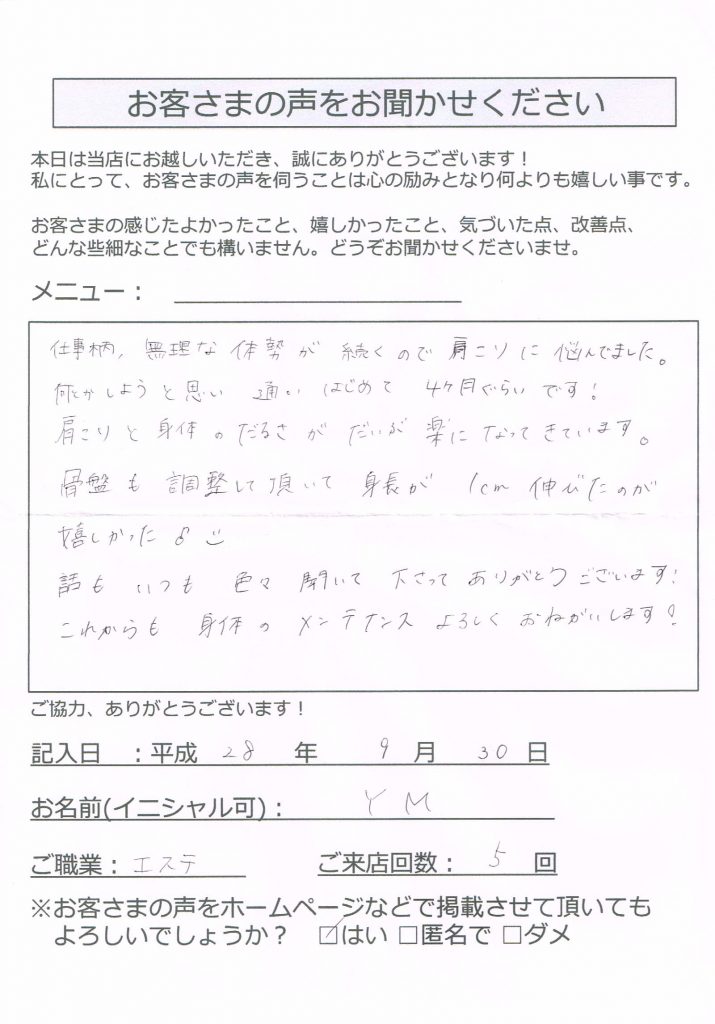 お客さまの声をお聞かせください
本日は当店にお越しいただき、誠にありがとうございます！
私にとって、お客さまの声を伺うことは心の励みとなり何よりも嬉しい事です。
お客さまの感じたよかったこと、嬉しかったこと、気づいた点、改善点、
どんな些細なことでも構いません。どうぞお聞かせくださいませ。
メニュー：
仕事柄、無理な体勢が続くので肩こりに悩んでました。
何とかしようと思い通いはじめて4ヶ月ぐらいです！
肩こりと身体のだるさがだいぶ楽になってきています。
骨盤も調整して頂いて身長が1cm伸びたのが
嬉しかった
話もいつも色々聞いて下さってありがとうございます！
これからも身体のメンテナンスよろしくおねがいします！
ご協力、ありがとうございます！
記入日 ：平成 28 年 9 月 30 日
お名前(イニシャル可)： Y M
ご職業：エステ ご来店回数： 5 回
※お客さまの声をホームページなどで掲載させて頂いても
よろしいでしょうか？ ☑はい □匿名で □ダメ